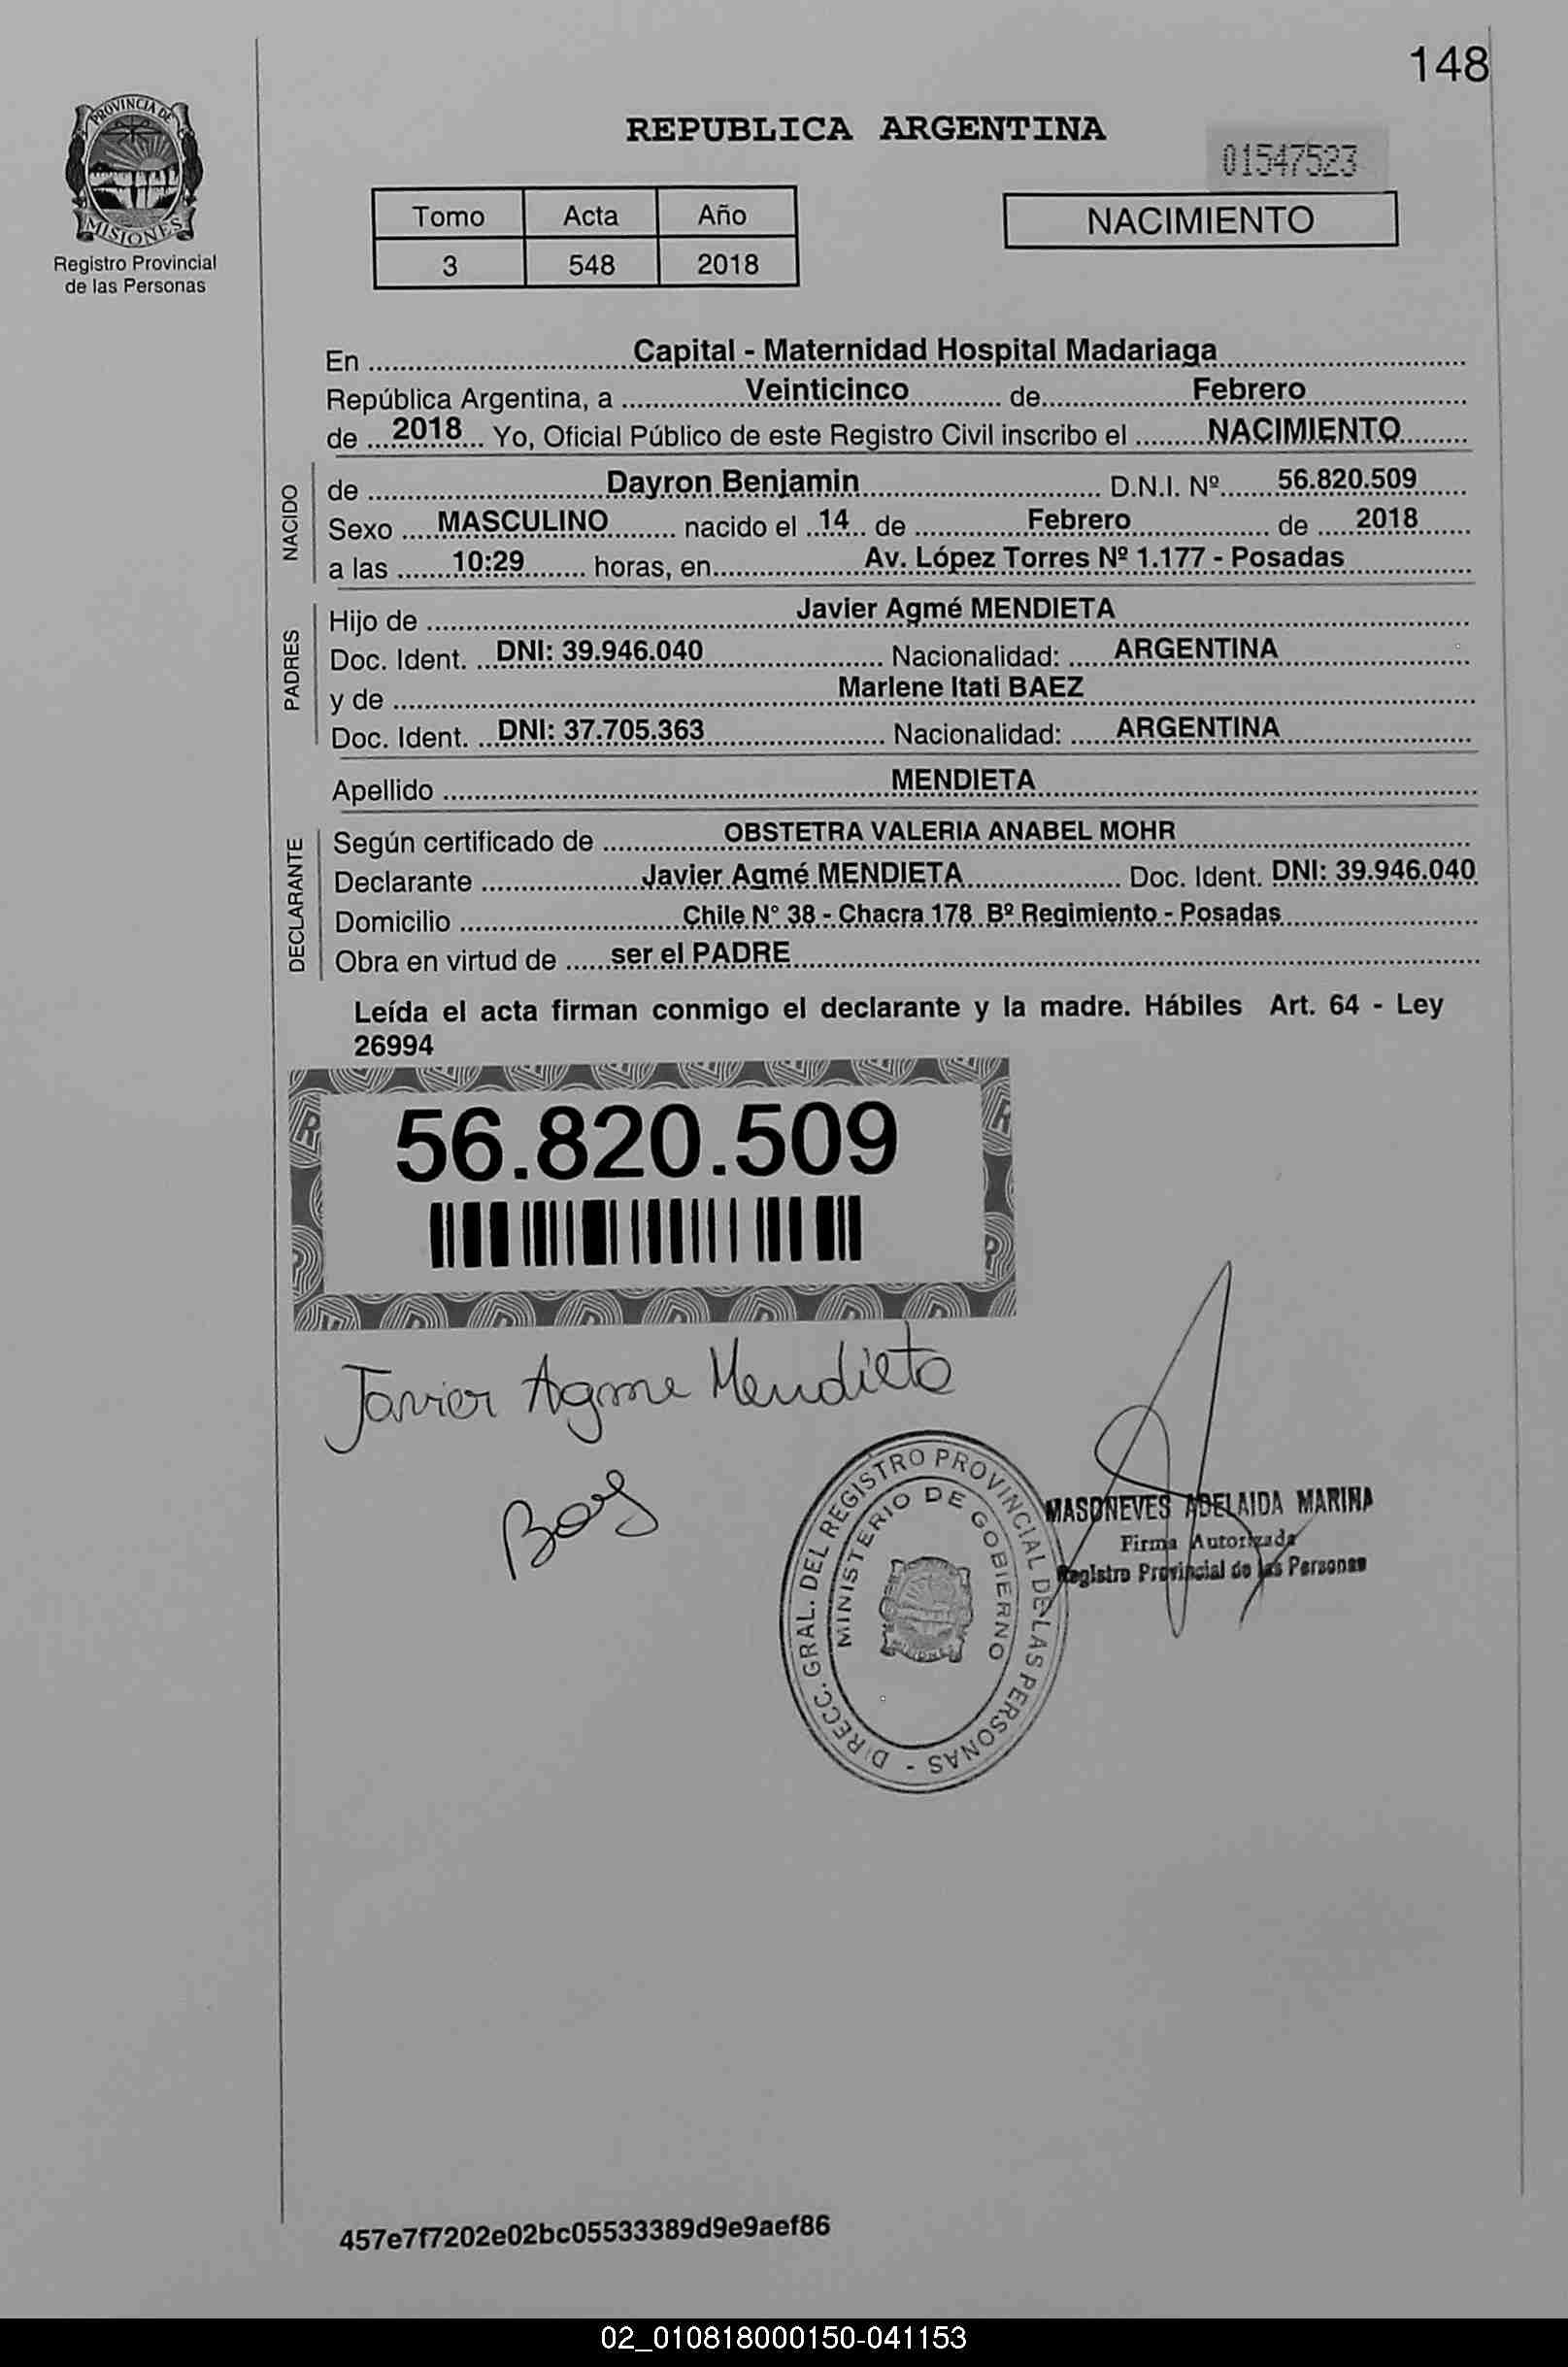 148
PROVINCIA DE
MISIONES
Registro Provincial
de las Personas
REPUBLICA ARGENTINA
01547523
Tomo Acta Año
3 548 2018
NACIMIENTO
En Capital - Maternidad Hospital Madariaga
República Argentina, a Veinticinco de Febrero
de 2018 Yo, Oficial Público de este Registro Civil inscribo el NACIMIENTO
NACIDO
de Dayron Benjamin D.N.I. Nº 56.820.509
Sexo MASCULINO nacido el 14 de Febrero de 2018
a las 10:29 horas, en Av. López Torres Nº 1.177 - Posadas
PADRES
Hijo de Javier Agmé MENDIETA
Doc. Ident. DNI: 39.946.040 Nacionalidad: ARGENTINA
y de Marlene Itati BAEZ
Doc. Ident. DNI: 37.705.363 Nacionalidad: ARGENTINA
Apellido MENDIETA
DECLARANTE
Según certificado de OBSTETRA VALERIA ANABEL MOHR
Declarante Javier Agmé MENDIETA Doc. Ident. DNI: 39.946.040
Domicilio Chile N° 38 - Chacra 178 Bº Regimiento - Posadas
Obra en virtud de ser el PADRE
Leída el acta firman conmigo el declarante y la madre. Hábiles Art. 64 - Ley
26994
56.820.509
Javier Agme Mendieta
DIRECC. GRAL. DEL REGISTRO PROVINCIAL DE LAS PERSONAS -
MINISTERIO DE GOBIERNO
MISIONES
MASONEVES ADELAIDA MARINA
Firma Autorizada
Registro Provincial de las Personas
457e7f7202e02bc05533389d9e9aef86
02_010818000150-041153